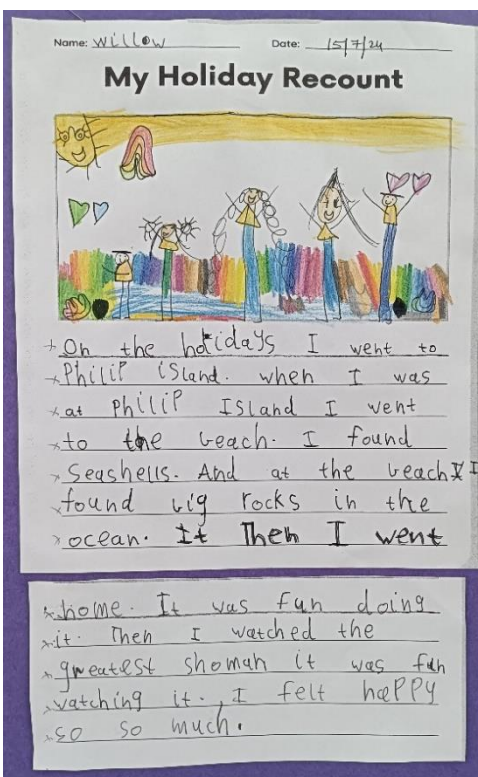 Name: Willow Date: 15/7/24
My Holiday Recount
On the holidays I went to
Philip island. when I was
at Philip Island I went
to the beach. I found
Seashells. And at the beach I
found big rocks in the
ocean. It Then I went
home. It was fun doing
it. Then I watched the
greatest shoman it was fun
watching it. I felt happy
so so much.